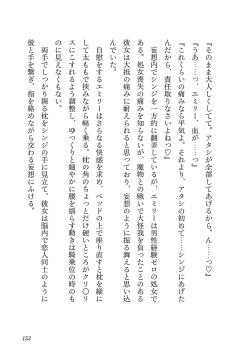 『そのまま大人しくしてて。アタシが全部してあげるから。ん……っ♡』
『うあ……っつ、エミリー、血が……っ』
『これくらいの痛みなら平気よ。それより、アタシの初めて……シンジにあげた
んだから、責任取りなさいよね♡』
　妄想内でシンジを一方的に蹂躙しているが、エミリーは男性経験ゼロの処女で
ある。処女喪失の痛みを知らないが、魔物との戦いで大怪我を負ったことのある
彼女は大抵の痛みに耐えられると自負しており、妄想のように振る舞えると思い込
んでいた。
　自慰をするエミリーはさらなる快感を求め、ベッドの上で座り直すと枕を縦に
して太ももで挟みながら軽く乗る。枕の角のちょっとだけ硬いところがクリ〇リ
スにこすれるよう調整し、ゆっくりと緩やかに腰を揺らす動きは騎乗位の時のも
のに見えなくもない。
　両手でしっかり握る枕をシンジの手に見立て、彼女は脳内で恋人同士のように
彼と手を繋ぎ、指を絡めながら交わる妄想にふける。
153